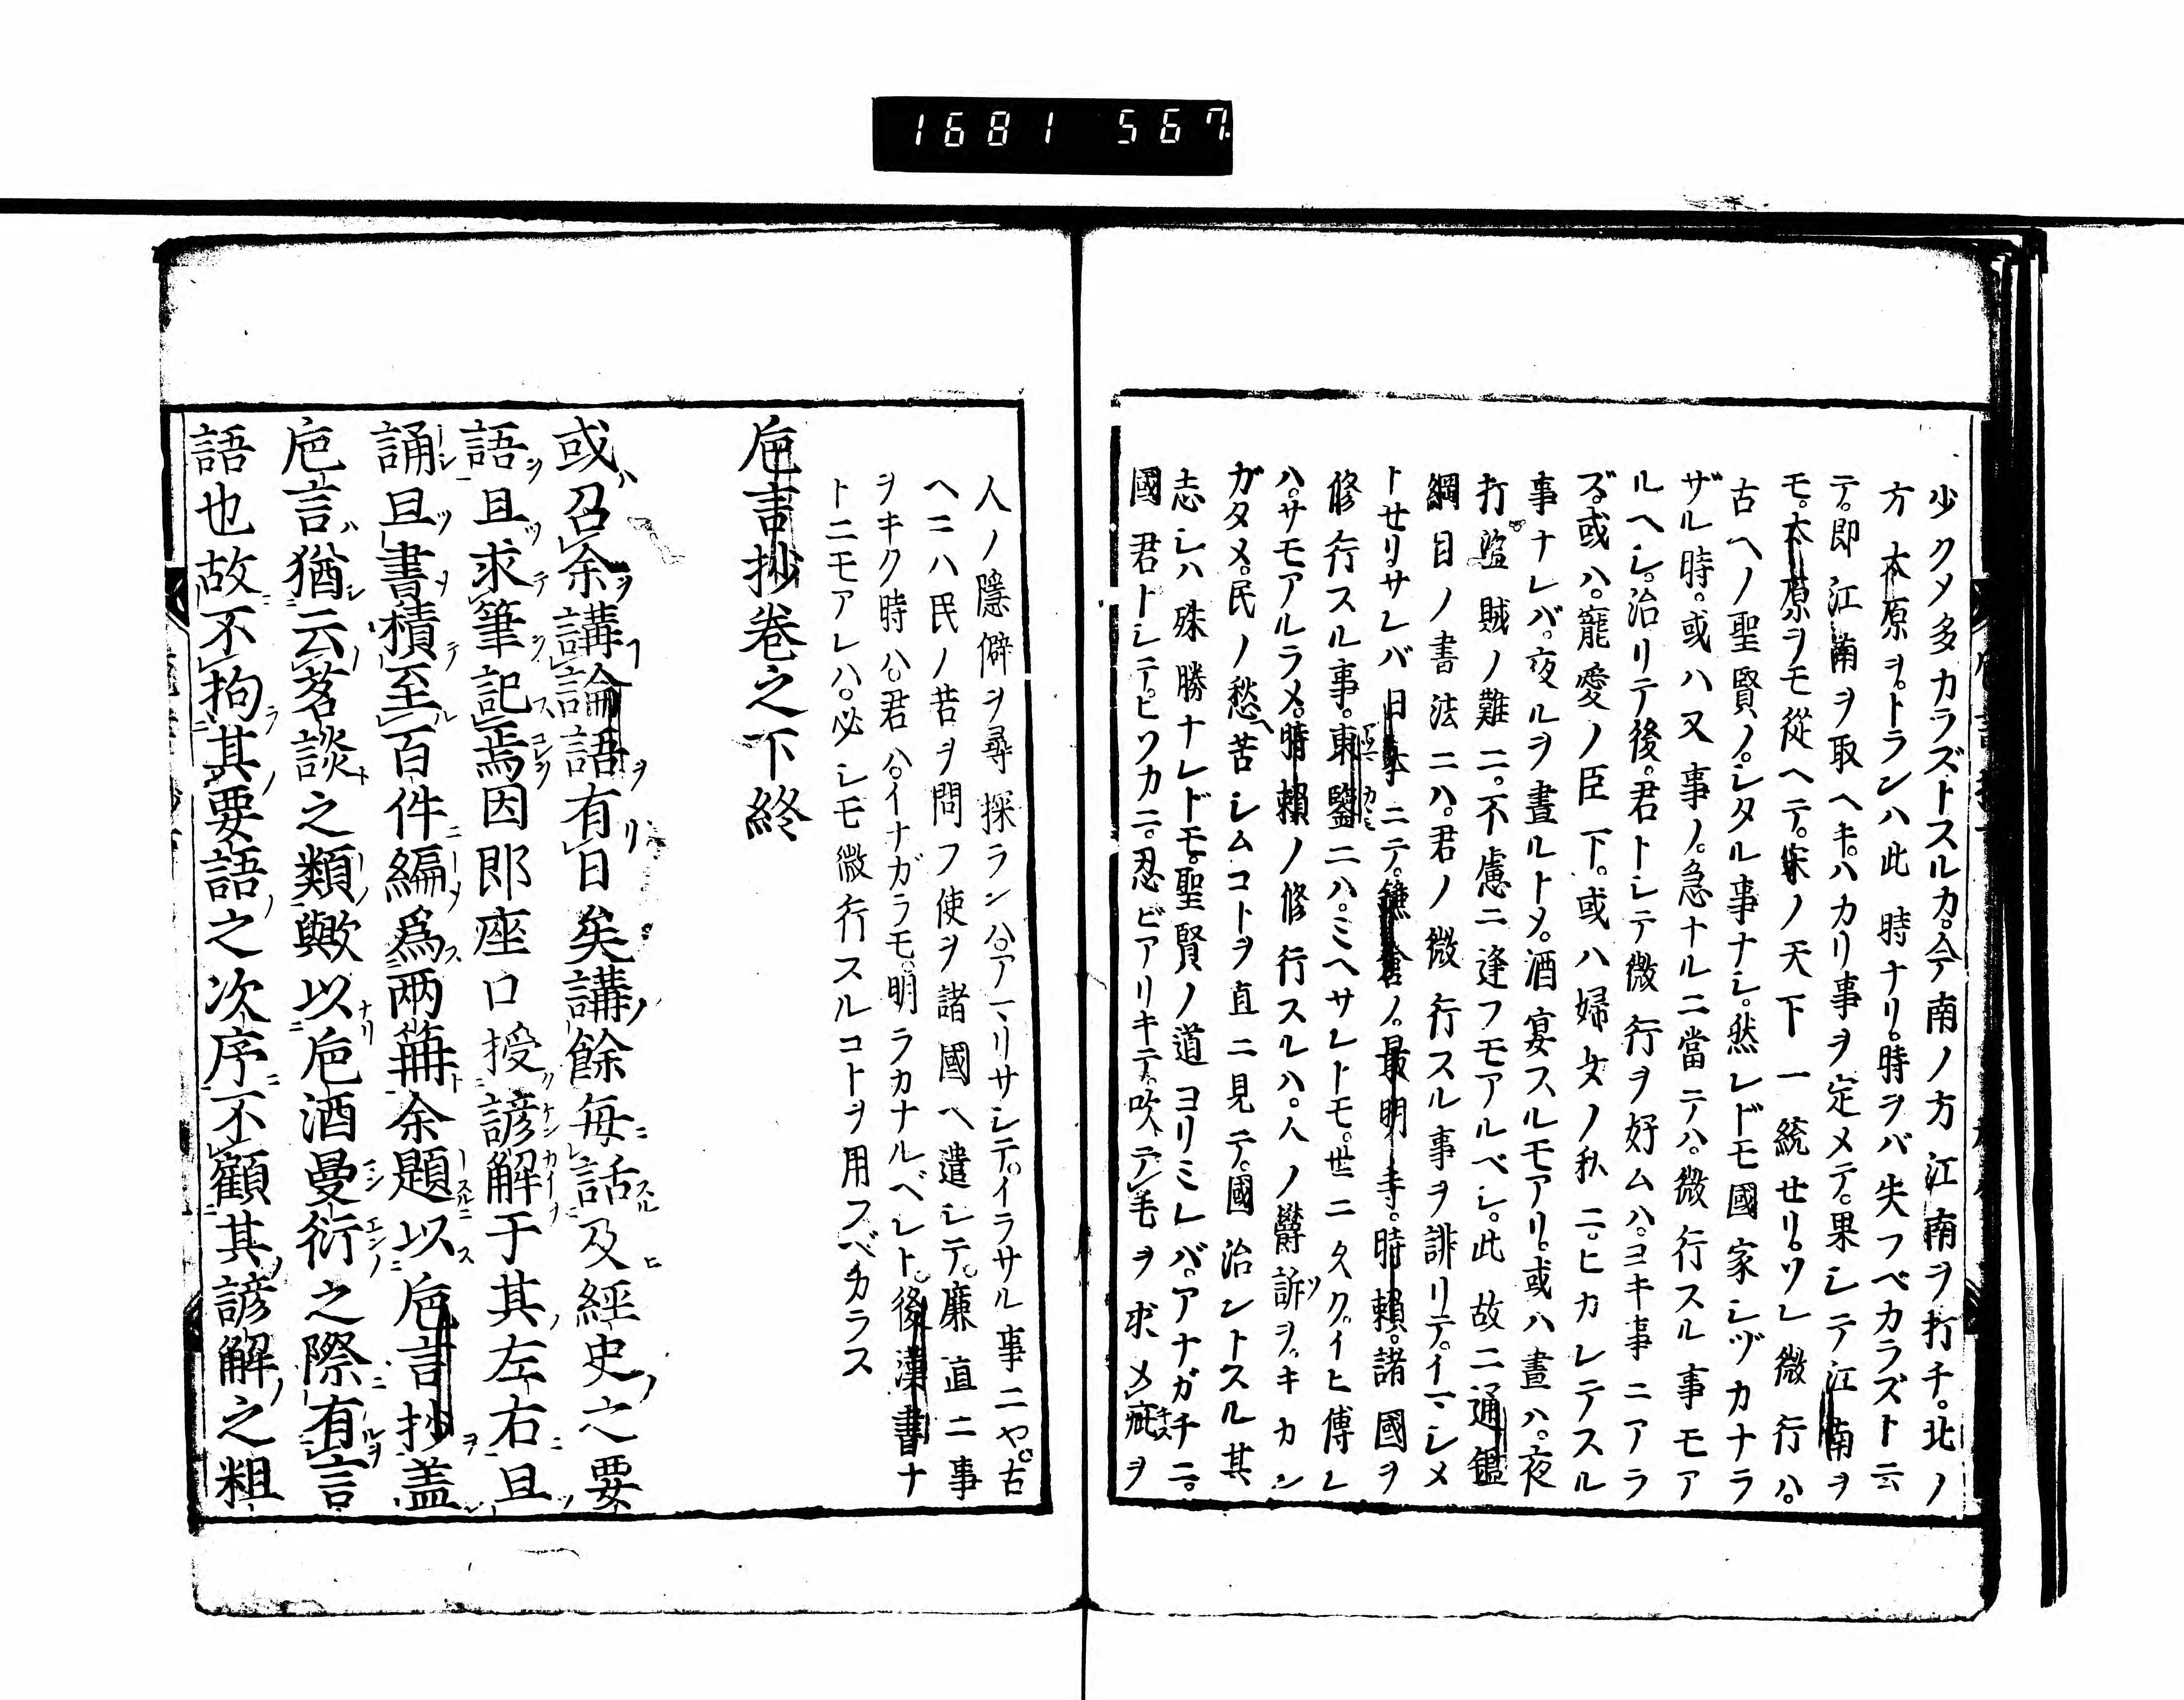 1681 567
少クメ多カラズトスルカ。今テ南ノ方江南ヲ打チ。北ノ
方太原ヲ。トランハ此時ナリ。時ヲバ失フベカラズト云
テ。即江南ヲ取ヘキ。ハカリ事ヲ定メテ。果シテ江南ヲ
モ。太原ヲモ從ヘテ。宋ノ天下一統セリ。ソレ微行ハ。
古ヘノ聖賢ノ。シタル事ナシ。然レドモ國家シヅカナラ
ザル時。或ハ又事ノ。急ナルニ當テハ。微行スル事モア
ルヘシ。治リテ後。君トシテ微行ヲ好ムハ。ヨキ事ニアラ
ズ。或ハ。寵愛ノ臣下。或ハ婦女ノ私ニ。ヒカレテスル
事ナレバ。夜ルヲ晝ルトメ。酒宴スルモアリ。或ハ晝ハ。夜
打盗賊ノ難ニ。不慮ニ逢フモアルベシ。此故ニ通鑑
綱目ノ書法ニハ。君ノ微行スル事ヲ誹リテ。イマシメ
トセリサレバ日本ニテ。鎌倉ノ。最明寺。時頼。諸國ヲ
修行スル事。東鑒ニハ。ミヘサレトモ。世ニ久ク。イヒ傳レ
ハ。サモアルラメ。時頼ノ修行スルハ。人ノ欝訴ヲ。キカン
ガタメ。民ノ愁ヘ苦シムコトヲ直ニ見テ。國治ントスル其
志シハ殊勝ナレドモ。聖賢ノ道ヨリミレバ。アナガチニ。
國君トシテ。ヒソカニ。忍ビアリキテ。吹テ毛ヲ求メ疵ヲ
人ノ隱僻ヲ尋探ランハ。アマリサシテ。イラサル事ニヤ。古
ヘニハ民ノ苦ヲ問フ使ヲ諸國ヘ遣シテ。廉直ニ事
ヲキク時ハ。君ハ。イナガラモ。明ラカナルベレト。後漢書ナ
トニモアレハ。必シモ微行スルコトヲ用フベカラス
巵言抄卷之下終
或召余講論語有日矣講餘毎話及經史之要
語且求筆記焉因即座口授諺解于其左右且
誦且書積至百件編爲兩冊余題以巵言抄盖
巵言猶云茗談之類歟以巵酒曼衍之際有言
語也故不拘其要語之次序不顧其諺解之粗